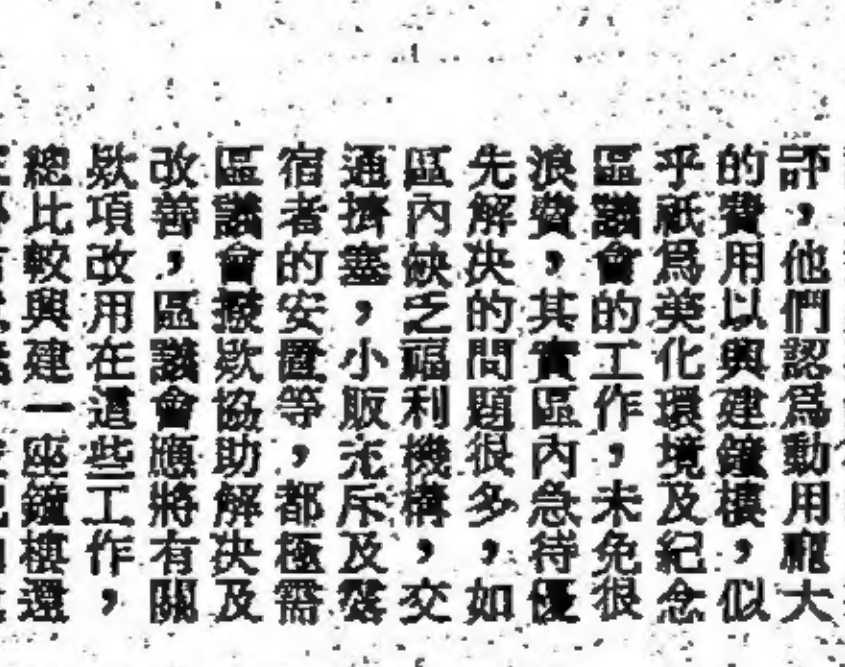 評，他們認爲動用龐大
的費用以興建鐘樓，似
乎祇爲美化環境及紀念
區議會的工作，未免很
浪費，其實區內急待優
先解決的問題很多，如
區內缺乏福利機構，交
通擠塞，小販充斥及露
宿者的安置等，都極需
區議會撥欵協助解決及
改善，區議會應將有關
欵項改用在這些工作，
總比較興建一座鐘樓還